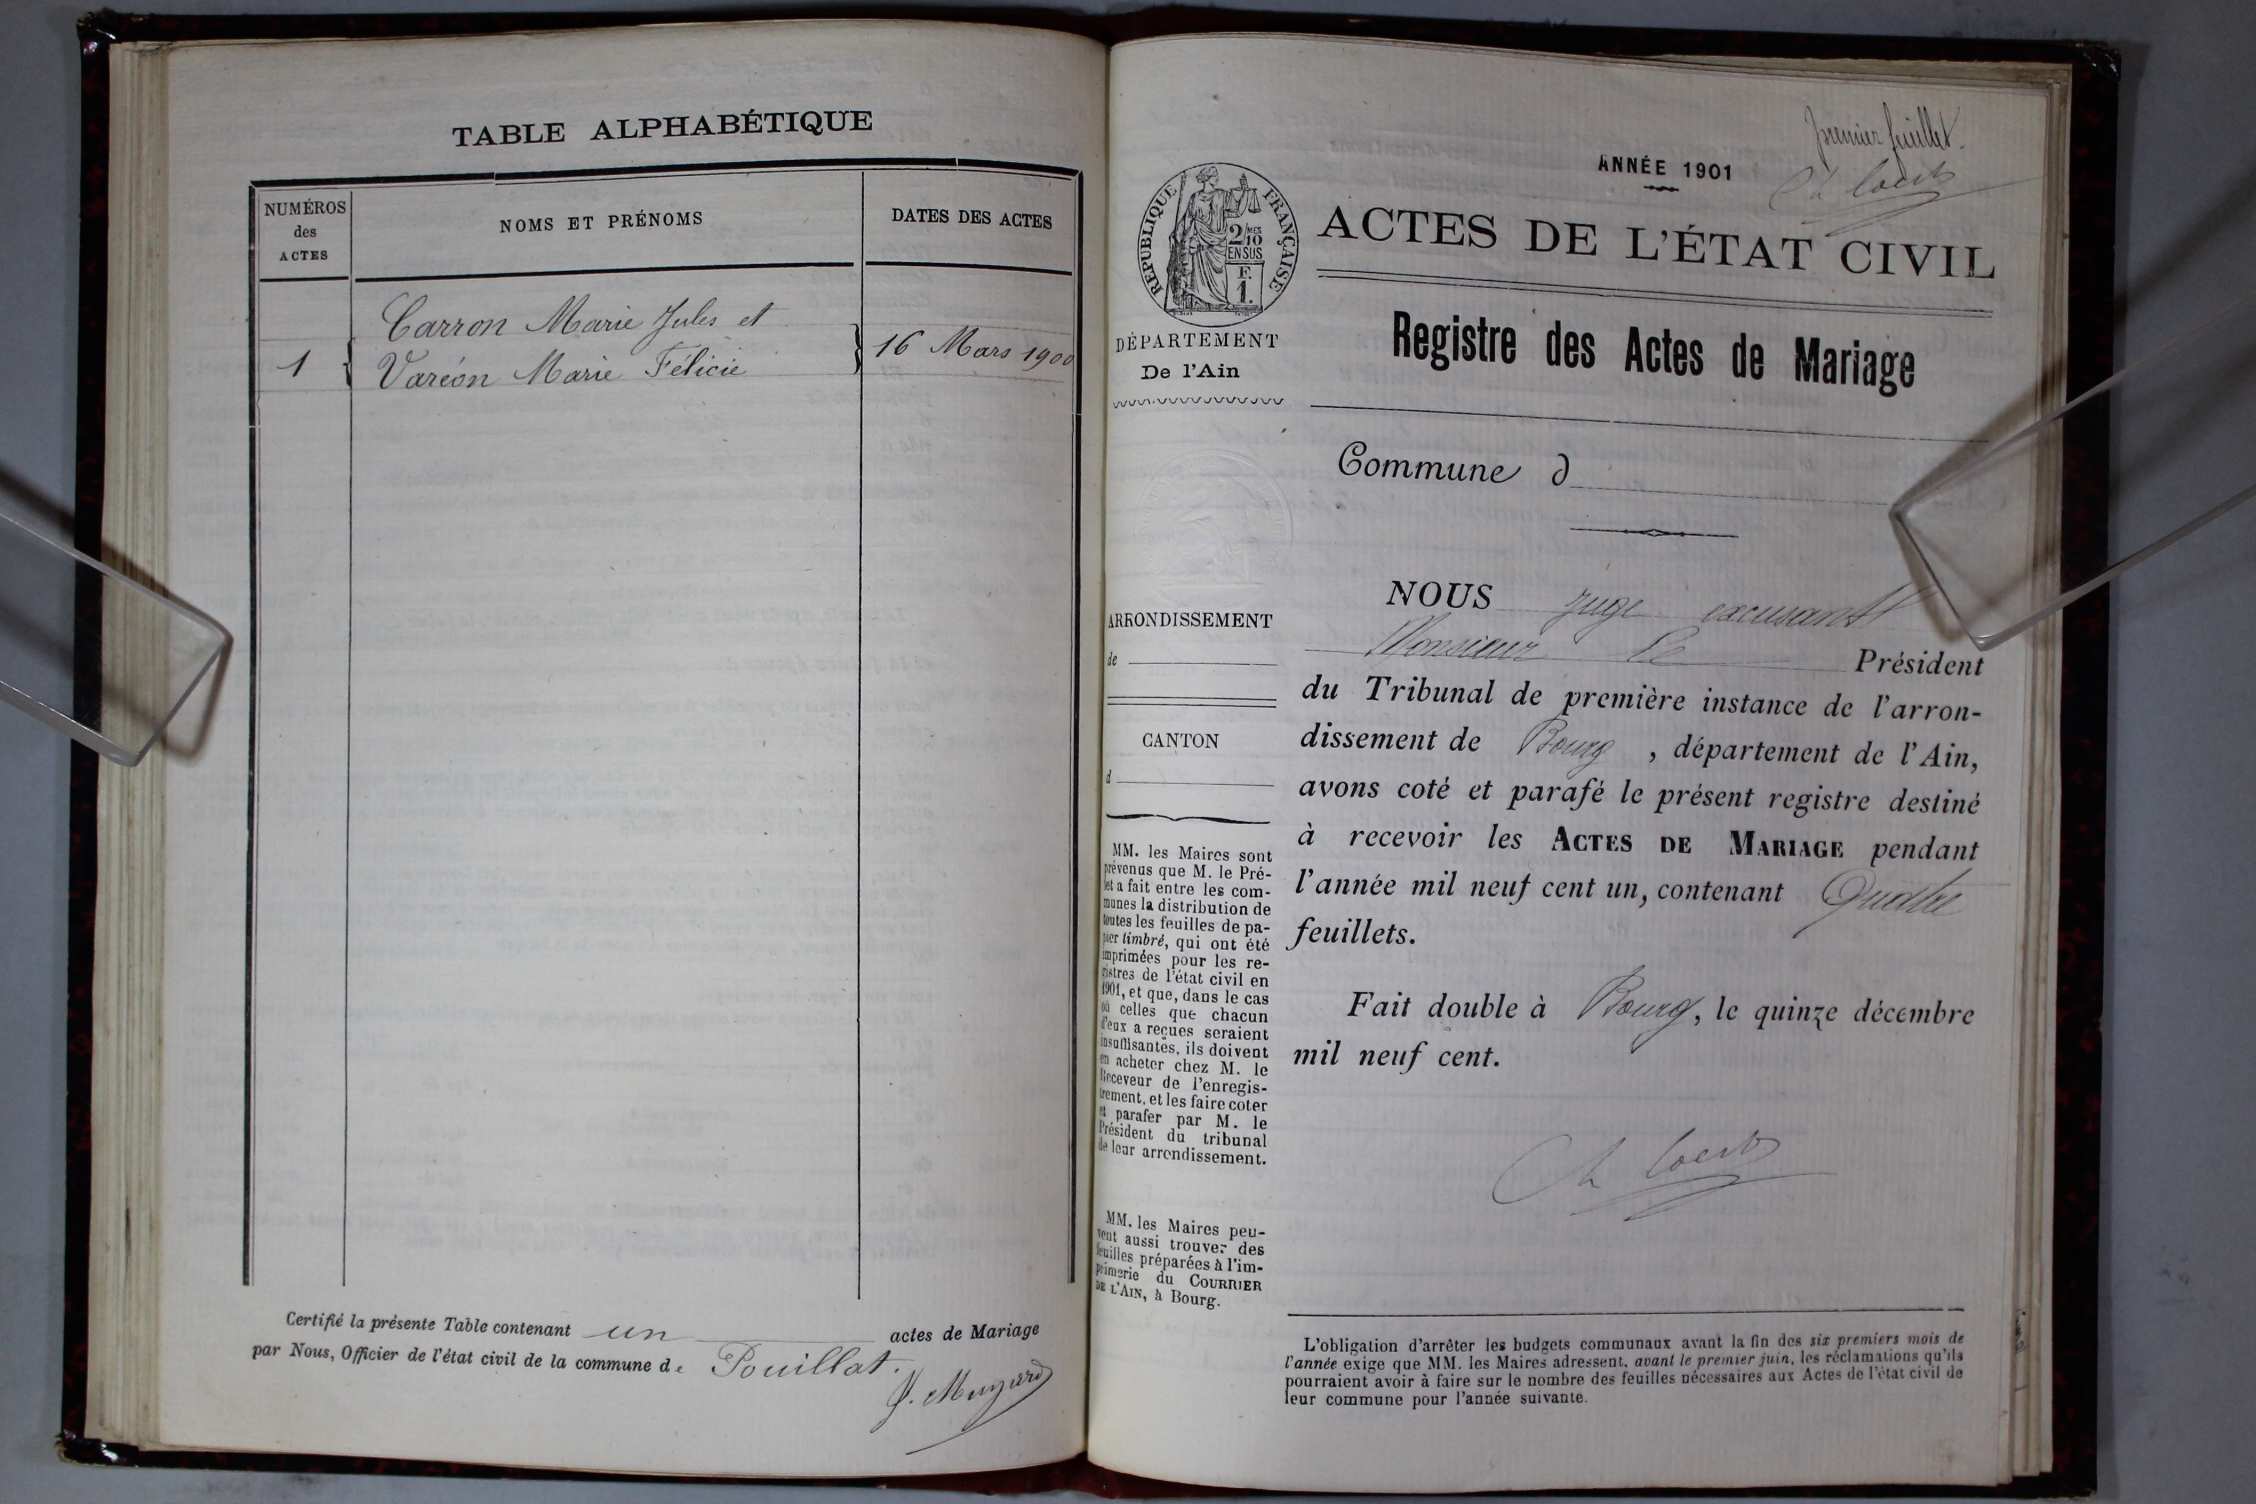 TABLE ALPHABÉTIQUE
NUMÉROS
des
ACTES
NOMS ET PRÉNOMS
DATES DES ACTES
Carron Marie Jules et
1
Varéon Marie Félicie
16 Mars 1900
Certifié la présente Table contenant un actes de Mariage
par Nous, Officier de l'état civil de la commune de Pouillat.
premier feuillet.
ANNÉE 1901
RÉPUBLIQUE FRANÇAISE
2/10 MES
EN SUS
F.
1.
ACTES DE L'ÉTAT CIVIL
DÉPARTEMENT
De l'Ain
Registre des Actes de Mariage
Commune d
ARRONDISSEMENT
de
CANTON
d
MM. les Maires sont
prévenus que M. le Pré-
fet a fait entre les com-
munes la distribution de
toutes les feuilles de pa-
pier timbré, qui ont été
imprimées pour les re-
gistres de l'état civil en
1901, et que, dans le cas
où celles que chacun
d'eux a reçues seraient
insuffisantes, ils doivent
en acheter chez M. le
Receveur de l'enregis-
trement, et les faire coter
et parafer par M. le
Président du tribunal
de leur arrondissement.
MM. les Maires peu-
vent aussi trouver des
feuilles préparées à l'im-
primerie du COURRIER
DE L'AIN, à Bourg.
NOUS juge excusant
Monsieur le Président
du Tribunal de première instance de l'arron-
dissement de Bourg, département de l'Ain,
avons coté et parafé le présent registre destiné
à recevoir les ACTES DE MARIAGE pendant
l'année mil neuf cent un, contenant Quatre
feuillets.
Fait double à Bourg, le quinze décembre
mil neuf cent.
L'obligation d'arrêter les budgets communaux avant la fin des six premiers mois de
l'année exige que MM. les Maires adressent, avant le premier juin, les réclamations qu'ils
pourraient avoir à faire sur le nombre des feuilles nécessaires aux Actes de l'état civil de
leur commune pour l'année suivante.